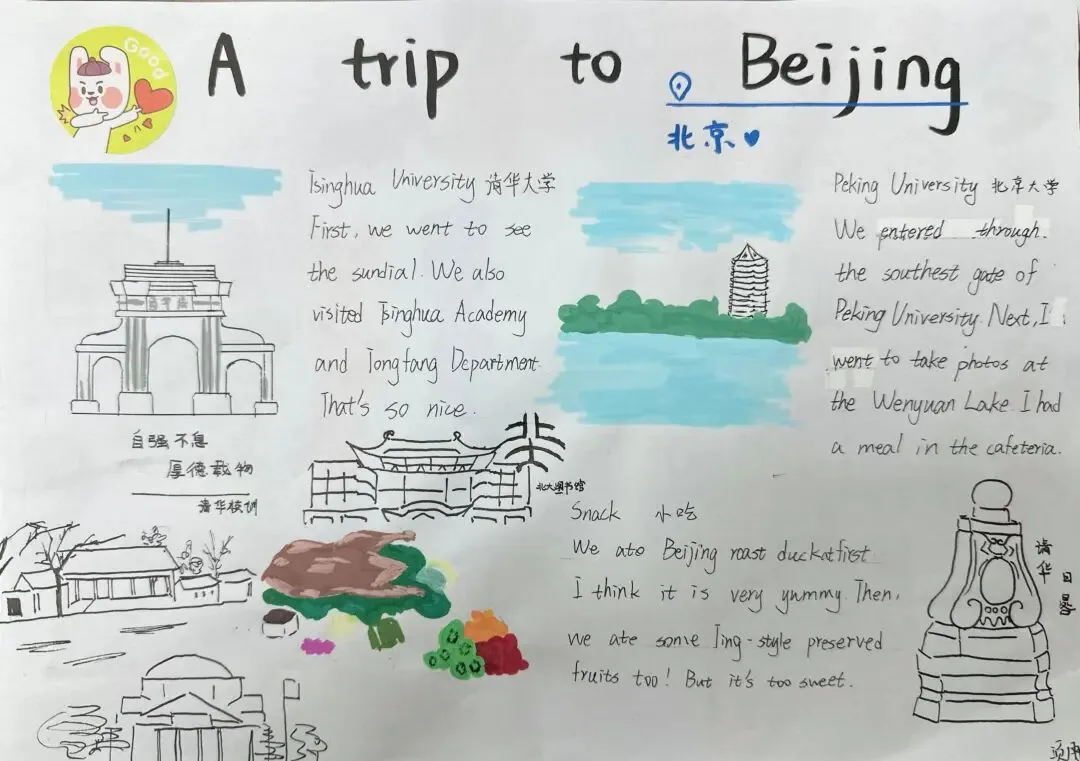 Good
A trip to Beijing
北京
Tsinghua University 清华大学
First, we went to see
the sundial. We also
visited Tsinghua Academy
and Tongfang Department.
That's so nice.
Peking University 北京大学
We entered through
the southest gate of
Peking University. Next, I
went to take photos at
the Wenyuan Lake. I had
a meal in the cafeteria.
清华园
自强不息
厚德载物
清华校训
北大图书馆
Snack 小吃
We ate Beijing roast duck at first
I think it is very yummy. Then,
we ate some Jing-style preserved
fruits too! But it's too sweet.
清华
日晷